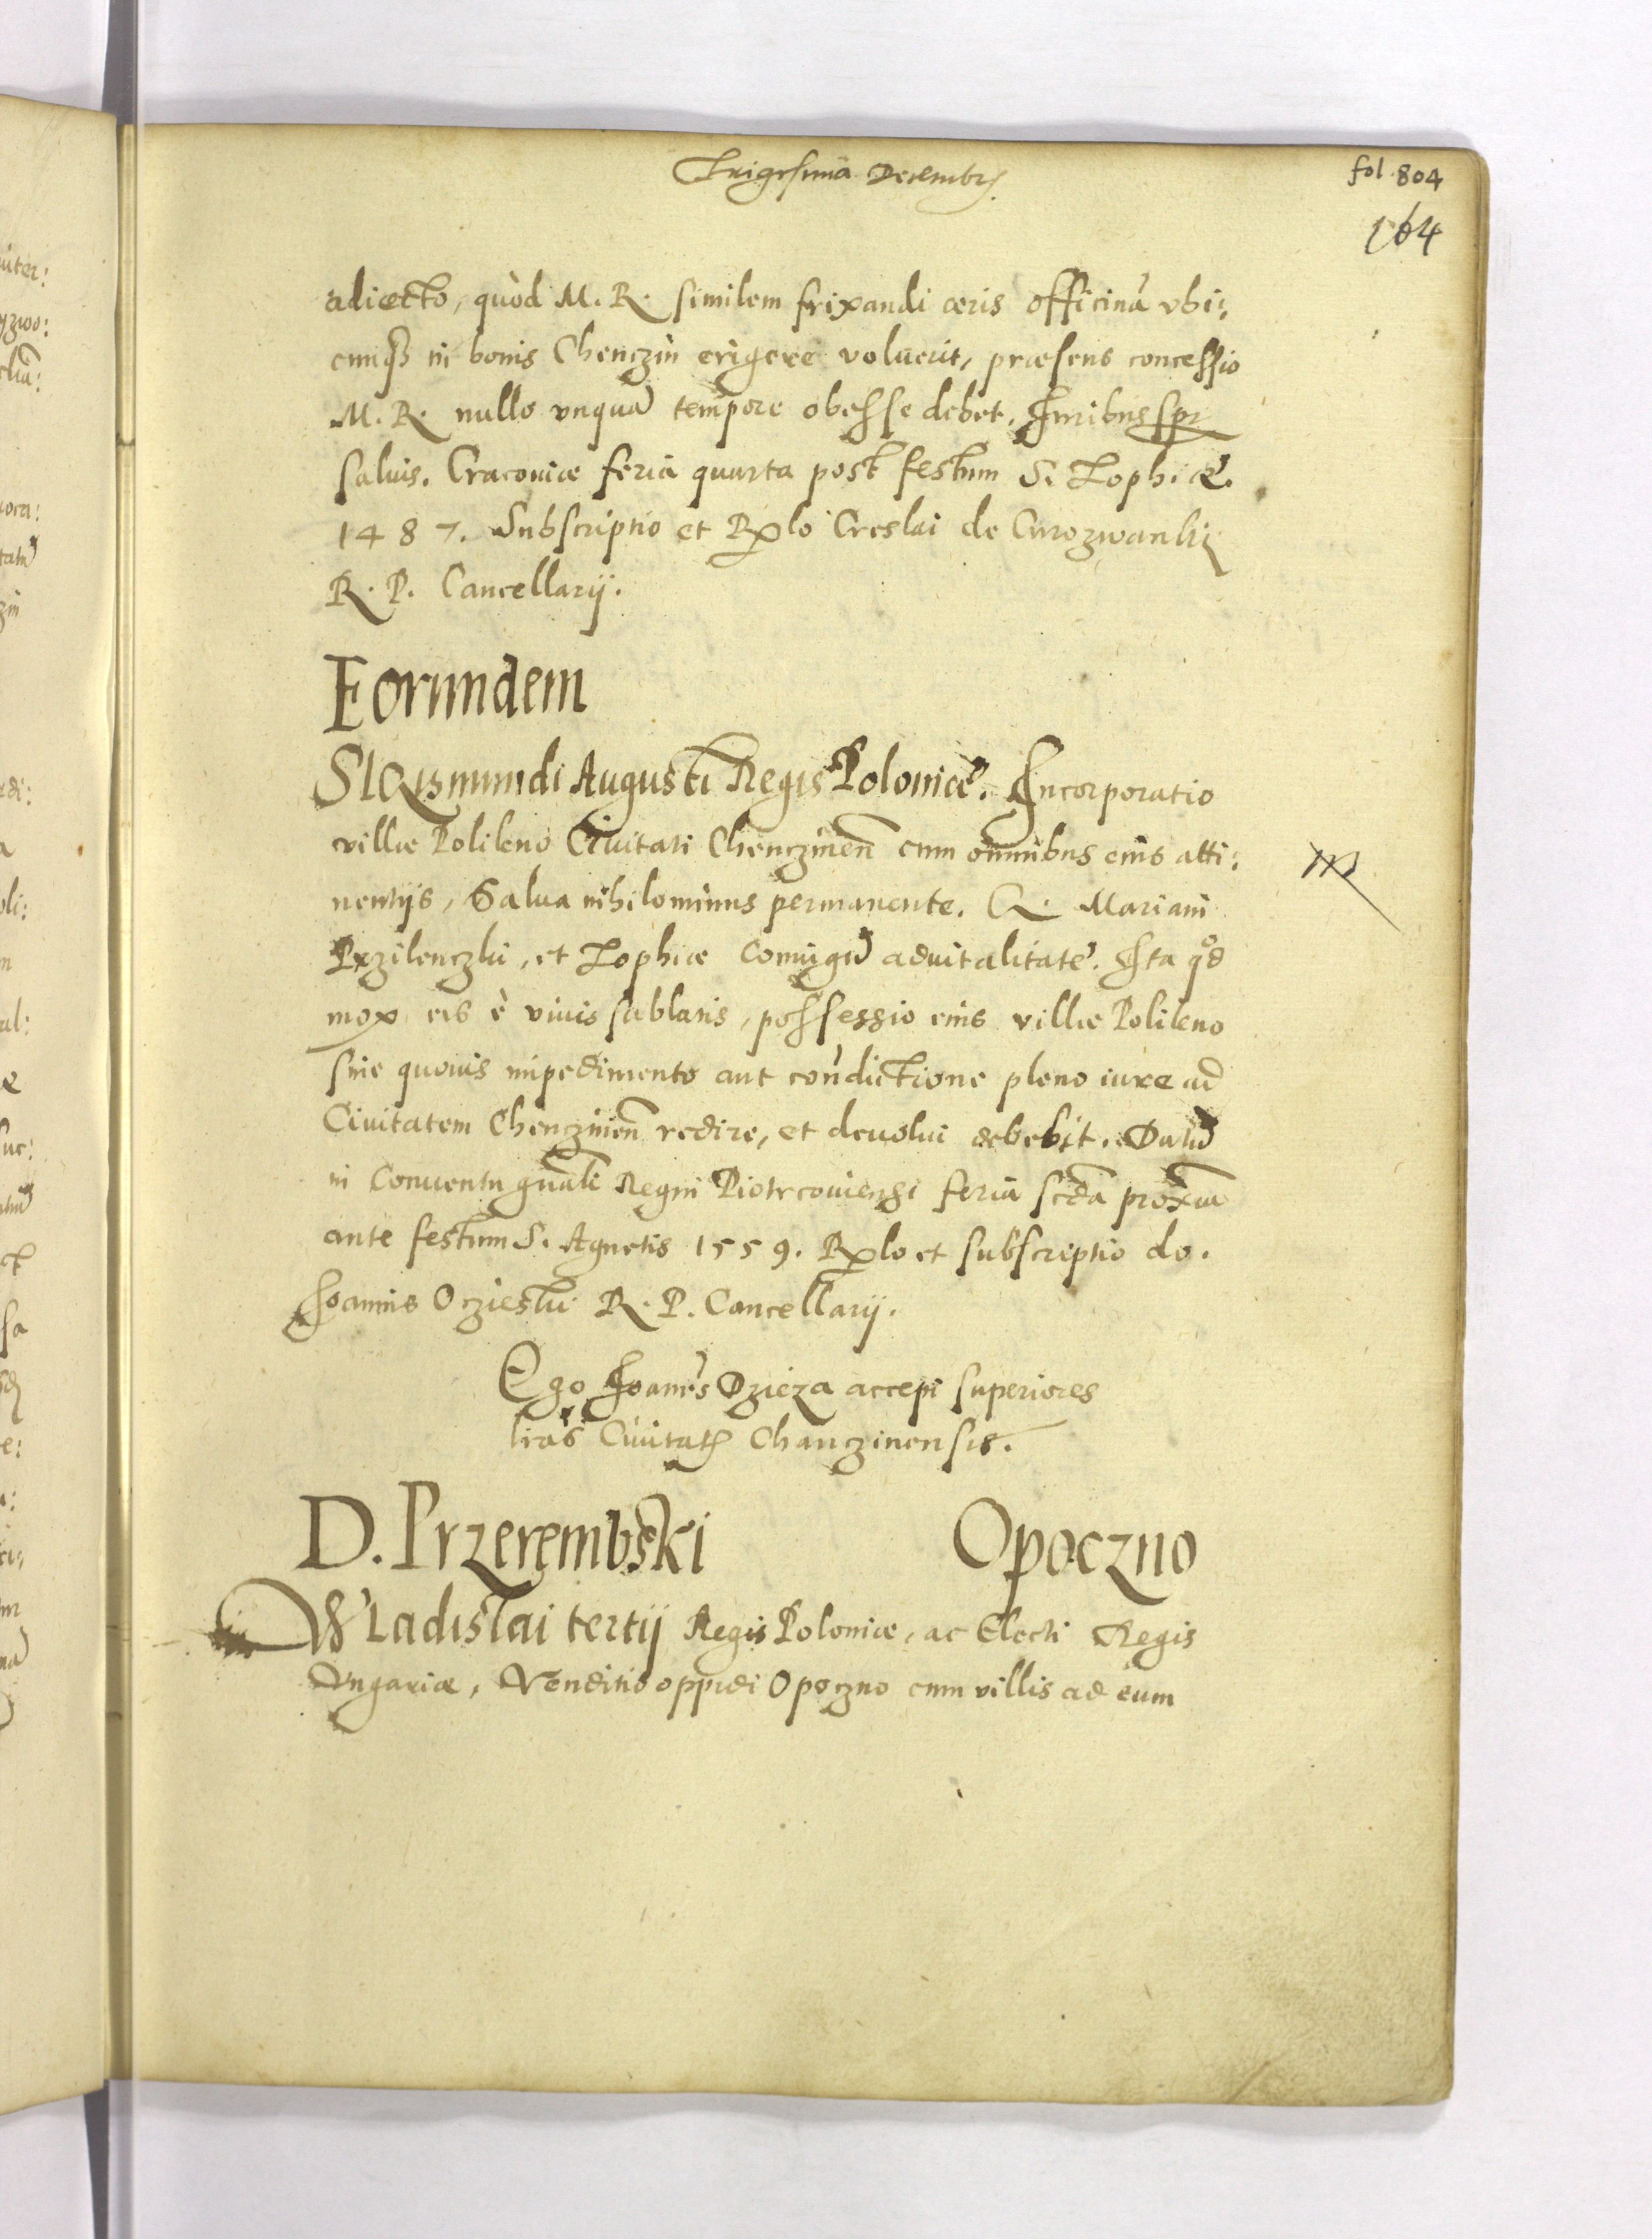 Trigesima Decembr[is]
fol. 804
164
adiecto, quòd M. R. similem frixandi æris officinā vbi:
cunq[ue] in bonis Chenczin erigere voluerit, præsens concessio
M. R. nullo vnquā tempore obesse debet, Juribus
saluis. Cracouiæ feria quarta post festum S. Zophiæ.
1487. Subscriptio et Rlo Creslai de Curozwanki
R. P. Cancellarij.
Eorundem
SIGismundi Augusti Regis Poloniæ. Incorporatio
villæ Polikno Ciuitati Chenczinen̄ cum omnibus eius atti:
nentijs, Salua nihilominus permanente. G. Mariani
Przilenczki, et Zophiæ Coniugū aduitalitatē. Ita qd
mox eis è viuis sublatis, possessio eius villæ Polikno
sine quouis impedimento aut con̄dictione pleno iure ad
Ciuitatem Chenczinen̄ redire, et deuolui debebit. Datū
in Conuentu gn̄ali Regni Piotrcouiensi feria scđa proxīa
ante festum S. Agnetis 1559. Rlo et subscriptio do.
Joannis Oczieski R. P. Cancellarij.
Ego Joanēs Dzieza accepi superiores
lrās Ciuitat[is] Chanczinensis.
D. Przerembski Opoczno
Wladislai tertij Regis Poloniæ, ac Electi Regis
Vngariæ, Venditio oppidi Opoczno cum villis ad eum